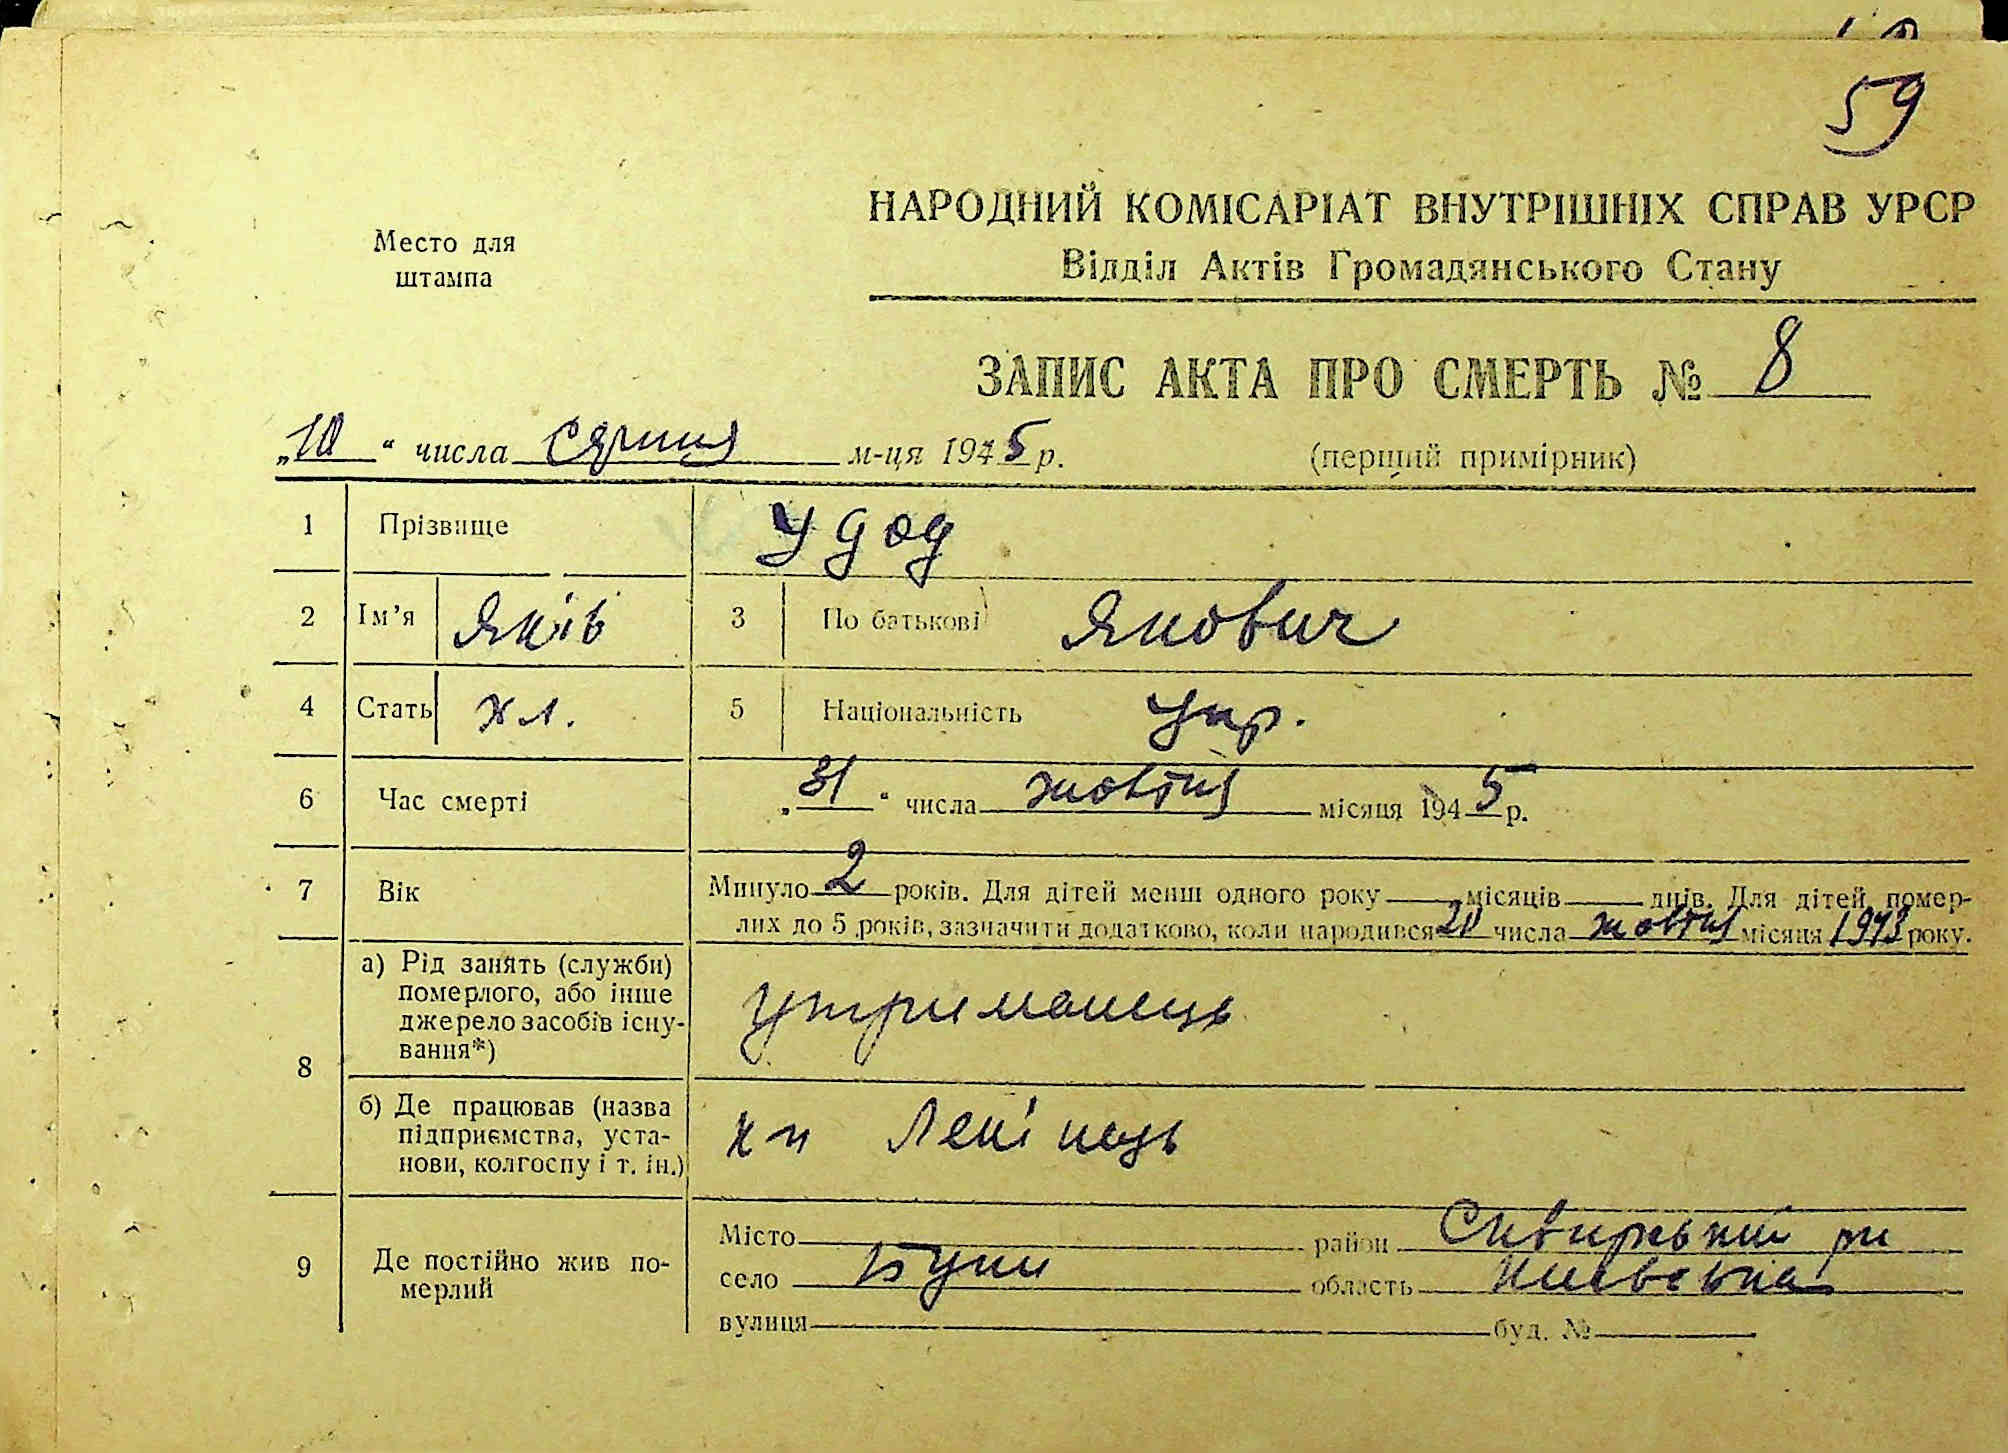 59
Место для
штампа
НАРОДНИЙ КОМІСАРІАТ ВНУТРІШНІХ СПРАВ УРСР
Відділ Актів Громадянського Стану
ЗАПИС АКТА ПРО СМЕРТЬ № 8
„10" числа Серпня м-ця 1945 р. (перший примірник)
1 Прізвище Удод
2 Ім'я Яків 3 По батькові Якович
4 Стать хл. 5 Національність укр.
6 Час смерті „31" числа жовтня місяця 1945 р.
7 Вік Минуло 2 років. Для дітей менш одного року місяців днів. Для дітей, помер-
лих до 5 років, зазначити додатково, коли народився 20 числа жовтня місяця 1943 року.
8 а) Рід занять (служби)
померлого, або інше
джерело засобів існу-
вання*) утриманець
б) Де працював (назва
підприємства, уста-
нови, колгоспу і т. ін.) кп Ленінець
9 Де постійно жив по-
мерлий
Місто район Сквирський рн
село Буки область Київська
вулиця буд. №